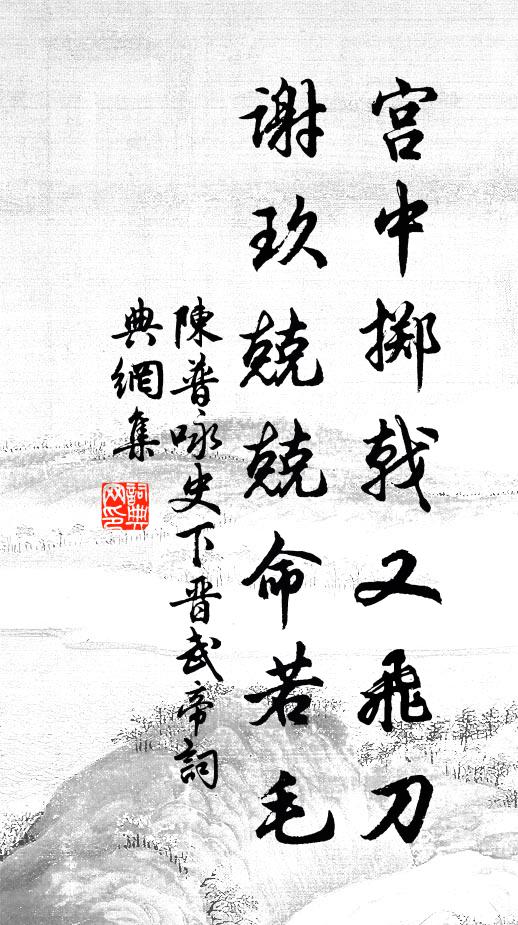 宫中掷戟又飛刀
谢玖兢兢命若毛
陳普咏史下晋武帝詞
典網集
詞典
网印